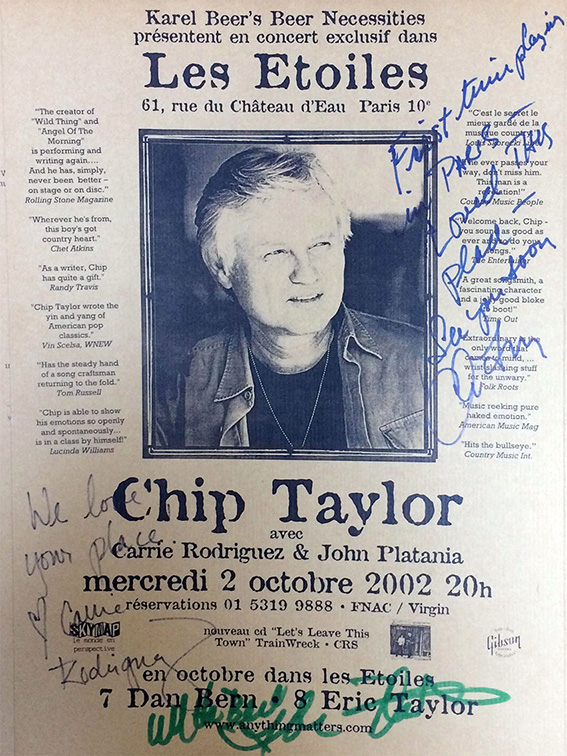 Karel Beer's Beer Necessities
présentent en concert exclusif dans
Les Etoiles
61, rue du Château d'Eau Paris 10e
"The creator of
"Wild Thing" and
"Angel Of The
Morning"
is performing and
writing again....
And he has, simply,
never been better -
on stage or on disc."
Rolling Stone Magazine
"Wherever he's from,
this boy's got
country heart."
Chet Atkins
"As a writer, Chip
has quite a gift."
Randy Travis
"Chip Taylor wrote the
yin and yang of
American pop
classics."
Vin Scelsa, WNEW
"Has the steady hand
of a song craftsman
returning to the fold."
Tom Russell
"Chip is able to show
his emotions so openly
and spontaneously...
is in a class by himself!"
Lucinda Williams
"C'est le secret le
mieux gardé de la
musique country
he ever passes your
way, don't miss him.
This man is a
Country Music People
Welcome back, Chip -
you sound as good as
ever and do your
songs."
The Entertainer
"A great songsmith, a
fascinating character
and a good bloke
to boot!"
Time Out
"Extraordinary is the
only word that
to mind, ...
stuff
for the unwary."
Folk Roots
"Music reeking pure
naked emotion."
American Music Mag
"Hits the bullseye."
Country Music Int.
First time playing
in PARIS -
Loved THIS
place -
See you soon
Chip Taylor
avec
Carrie Rodriguez & John Platania
mercredi 2 octobre 2002 20h
réservations 01 5319 9888 • FNAC / Virgin
We love
your place.
♡ Carrie
Rodriguez
SKYMAP
le monde en
perspective
nouveau cd "Let's Leave This
Town" TrainWreck • CRS
Gibson
en octobre dans les Etoiles
7 Dan Bern • 8 Eric Taylor
www.anythingmatters.com